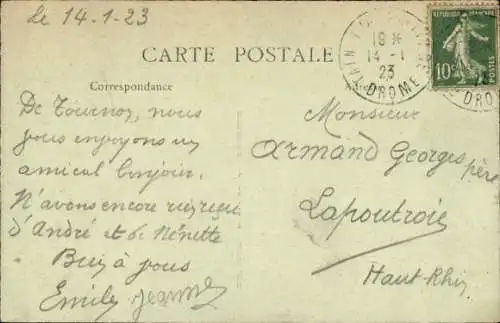 Le 14-1-23
CARTE POSTALE
Correspondance
De Tournon, nous
vous envoyons un
amical bonjour.
N'avons encore rien reçu
d'André et de Nénette
Bien à vous
Emile Jeanne
Monsieur
Armand Georges père
Lapoutroie
Haut-Rhin
TAIN
19 H
14 - 1
23
DROME
RÉPUBLIQUE FRANÇAISE
10c
POSTES
DRO